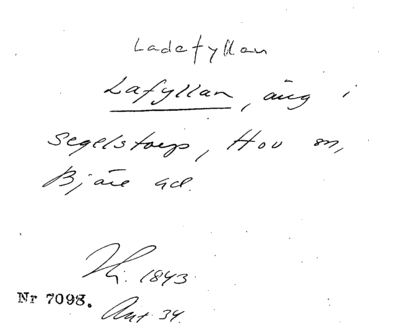 Ladefyllan
Lafyllan, äng i
Segelstorp, Hov sn,
Bjäre hd.
1843
Nr 7098. Ant. 34.